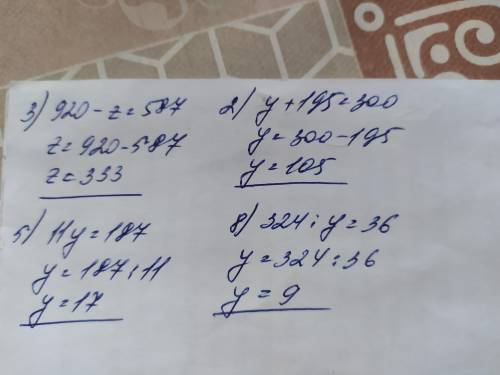 3) 920 - z = 587
z = 920 - 587
z = 333
2) y + 195 = 300
y = 300 - 195
y = 105
5) 11y = 187
y = 187 : 11
y = 17
8) 324 : y = 36
y = 324 : 36
y = 9